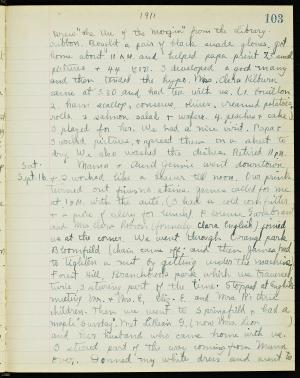 1911
103
wrote "the Use of the Margin" from the Library.
ribbon. Bought a pair of black suede gloves, got
home about 11 A.M. and helped papa print 72 small
pictures + 44 I developed a good many
and then tended the hypo. Mrs. Clara Kilburn
came at 5.30 and had tea with us. Ct. bouillon
2. ham scallop, conserve, olives, creamed potatoes
rolls 3 salmon salad + wafers. 4 peaches + cake
I played for her. We had a nice visit. Papa +
I worked pictures, + spread them on a sheet to
dry. We also washed the dishes. Retired 11 P.M.
Sat. Mama + Aunt Jennie went downtown
Sept. 16 + I worked like a slave till noon. Our prints
turned out fine. James called for me
at 1 P.M. with the auto, (I had a cold
+ a piece of for lunch)
and Mrs Clara Robson (formerly Clara English) joined
us at the corner. We went through Orange park
Bloomfield (chain came off and then James had
to tighten a nut by getting under the machine)
Forest Hill, Branchbrook park which we traversed
twice, I steering part of the time. Stopped at English's
meeting Mr. + Mrs. E, Eliz. E. and Mrs R's three
children. Then we went to Springfield + had a
maple Sundae. Met Lillian G. (now Mrs.
and her husband who came home with us.
I steered part of the way coming from
Donned my white dress and went to